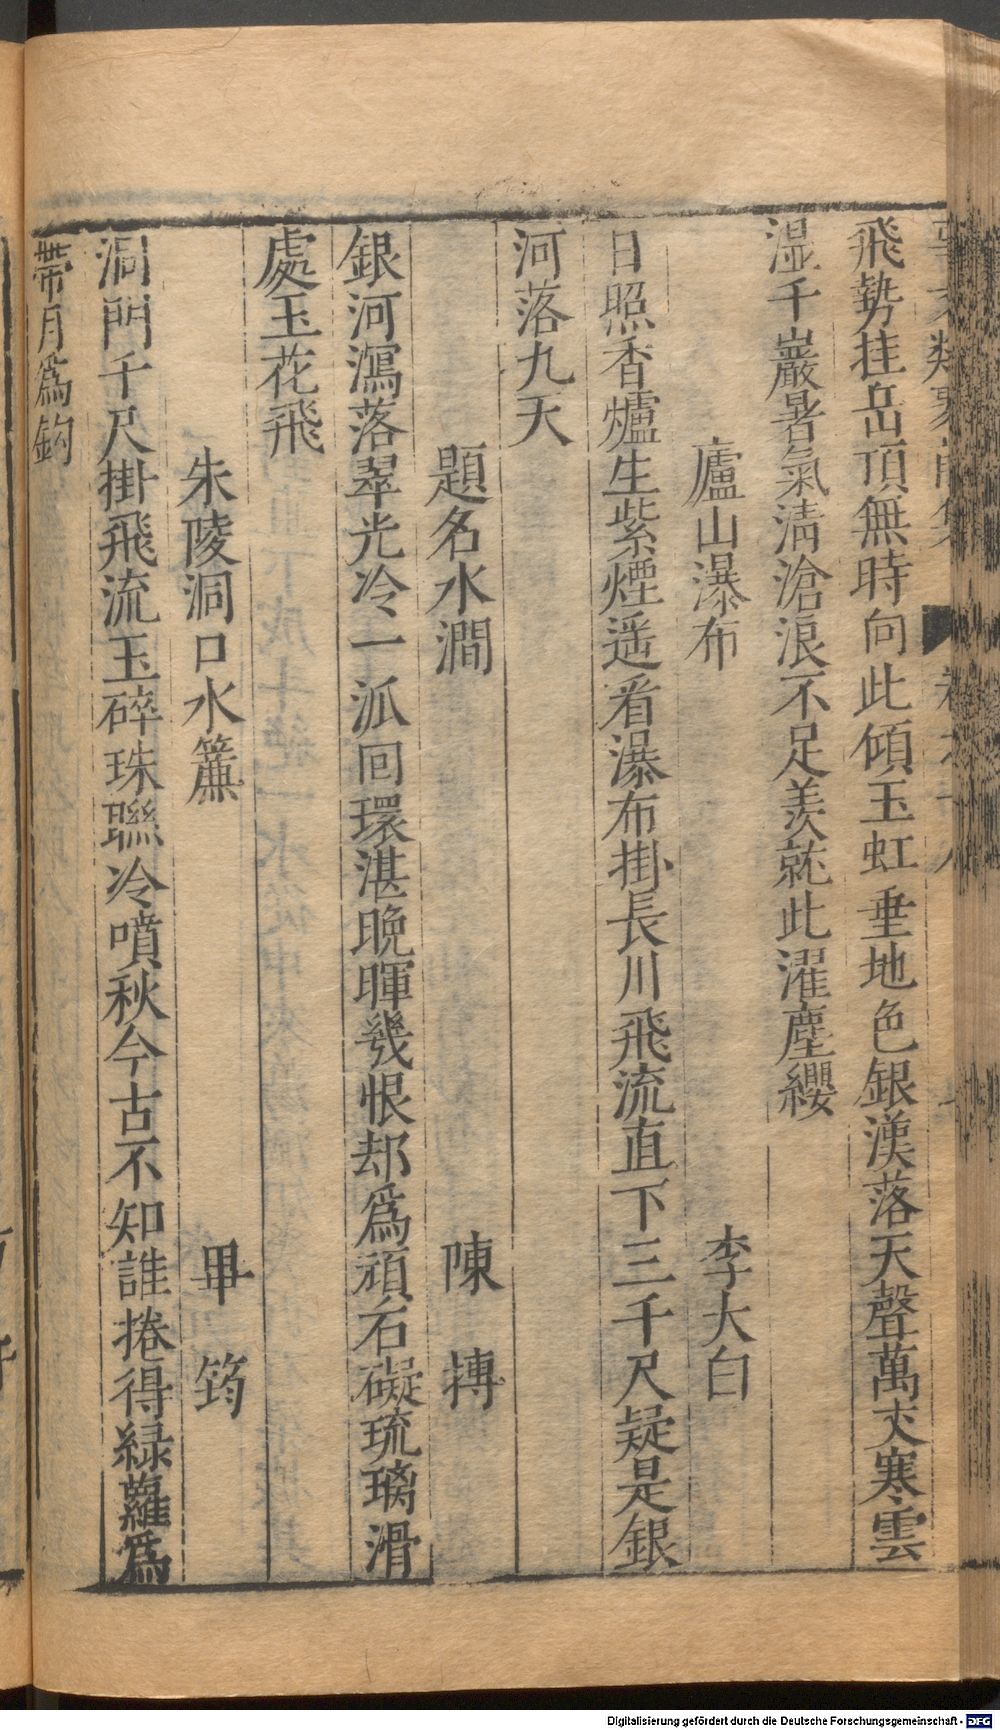 飛勢挂岳頂無時向此傾玉虹垂地色銀漢落天聲萬丈寒雲
湿千巖暑氣清滄浪不足羨就此濯塵纓
廬山瀑布 李太白
日照香爐生紫煙遥看瀑布掛長川飛流直下三千尺疑是銀
河落九天
題名水澗 陳摶
銀河瀉落翠光冷一泒回環湛晚暉㡬恨却爲頑石礙琉璃滑
處玉花飛
朱陵洞口水簾 畢筠
洞門千尺掛飛流玉碎珠聯冷噴秋今古不知誰捲得緑蘿爲
帶月爲鈎
Digitalisierung gefördert durch die Deutsche Forschungsgemeinschaft - DFG